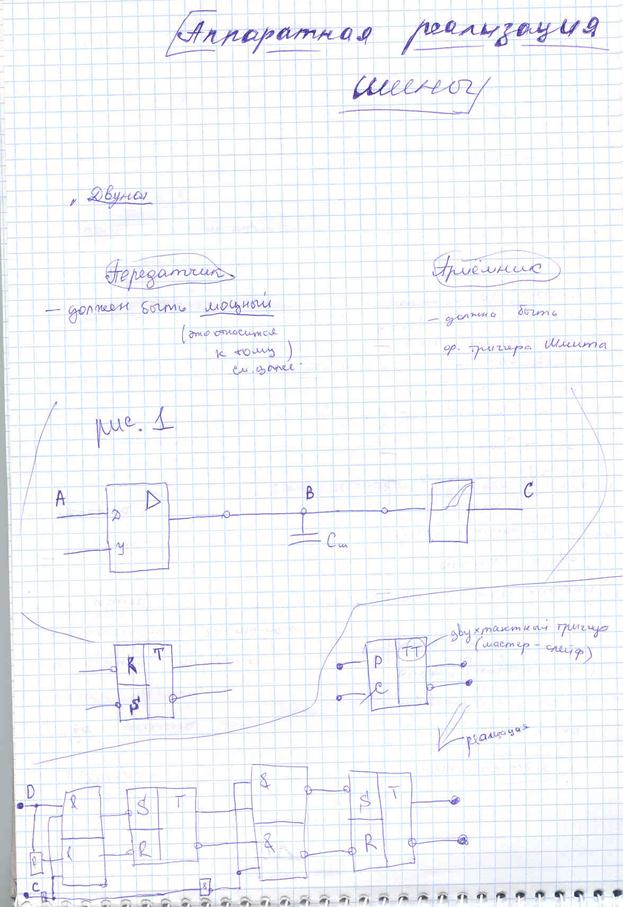 Аппаратная реализация
шины
Двуна
Передатчик
Приёмник
– должен быть мощный
(это относится
к тому)
см. далее
– должна быть
ф. тригера Шмита
рис. 1
A
B
C
Д
У
Cш
R T
S
двухтактный тригер
(мастер-слейф)
D TT
C
реализация
D
& S T & S T
& R & R
C